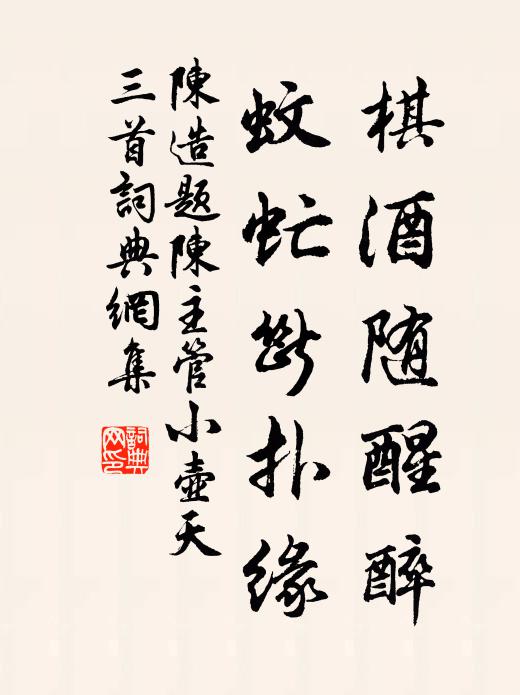 棋酒随醒醉
蚊虻斷扑緣
陳造題陳主管小壺天
三首詞典網集
詞典
网印